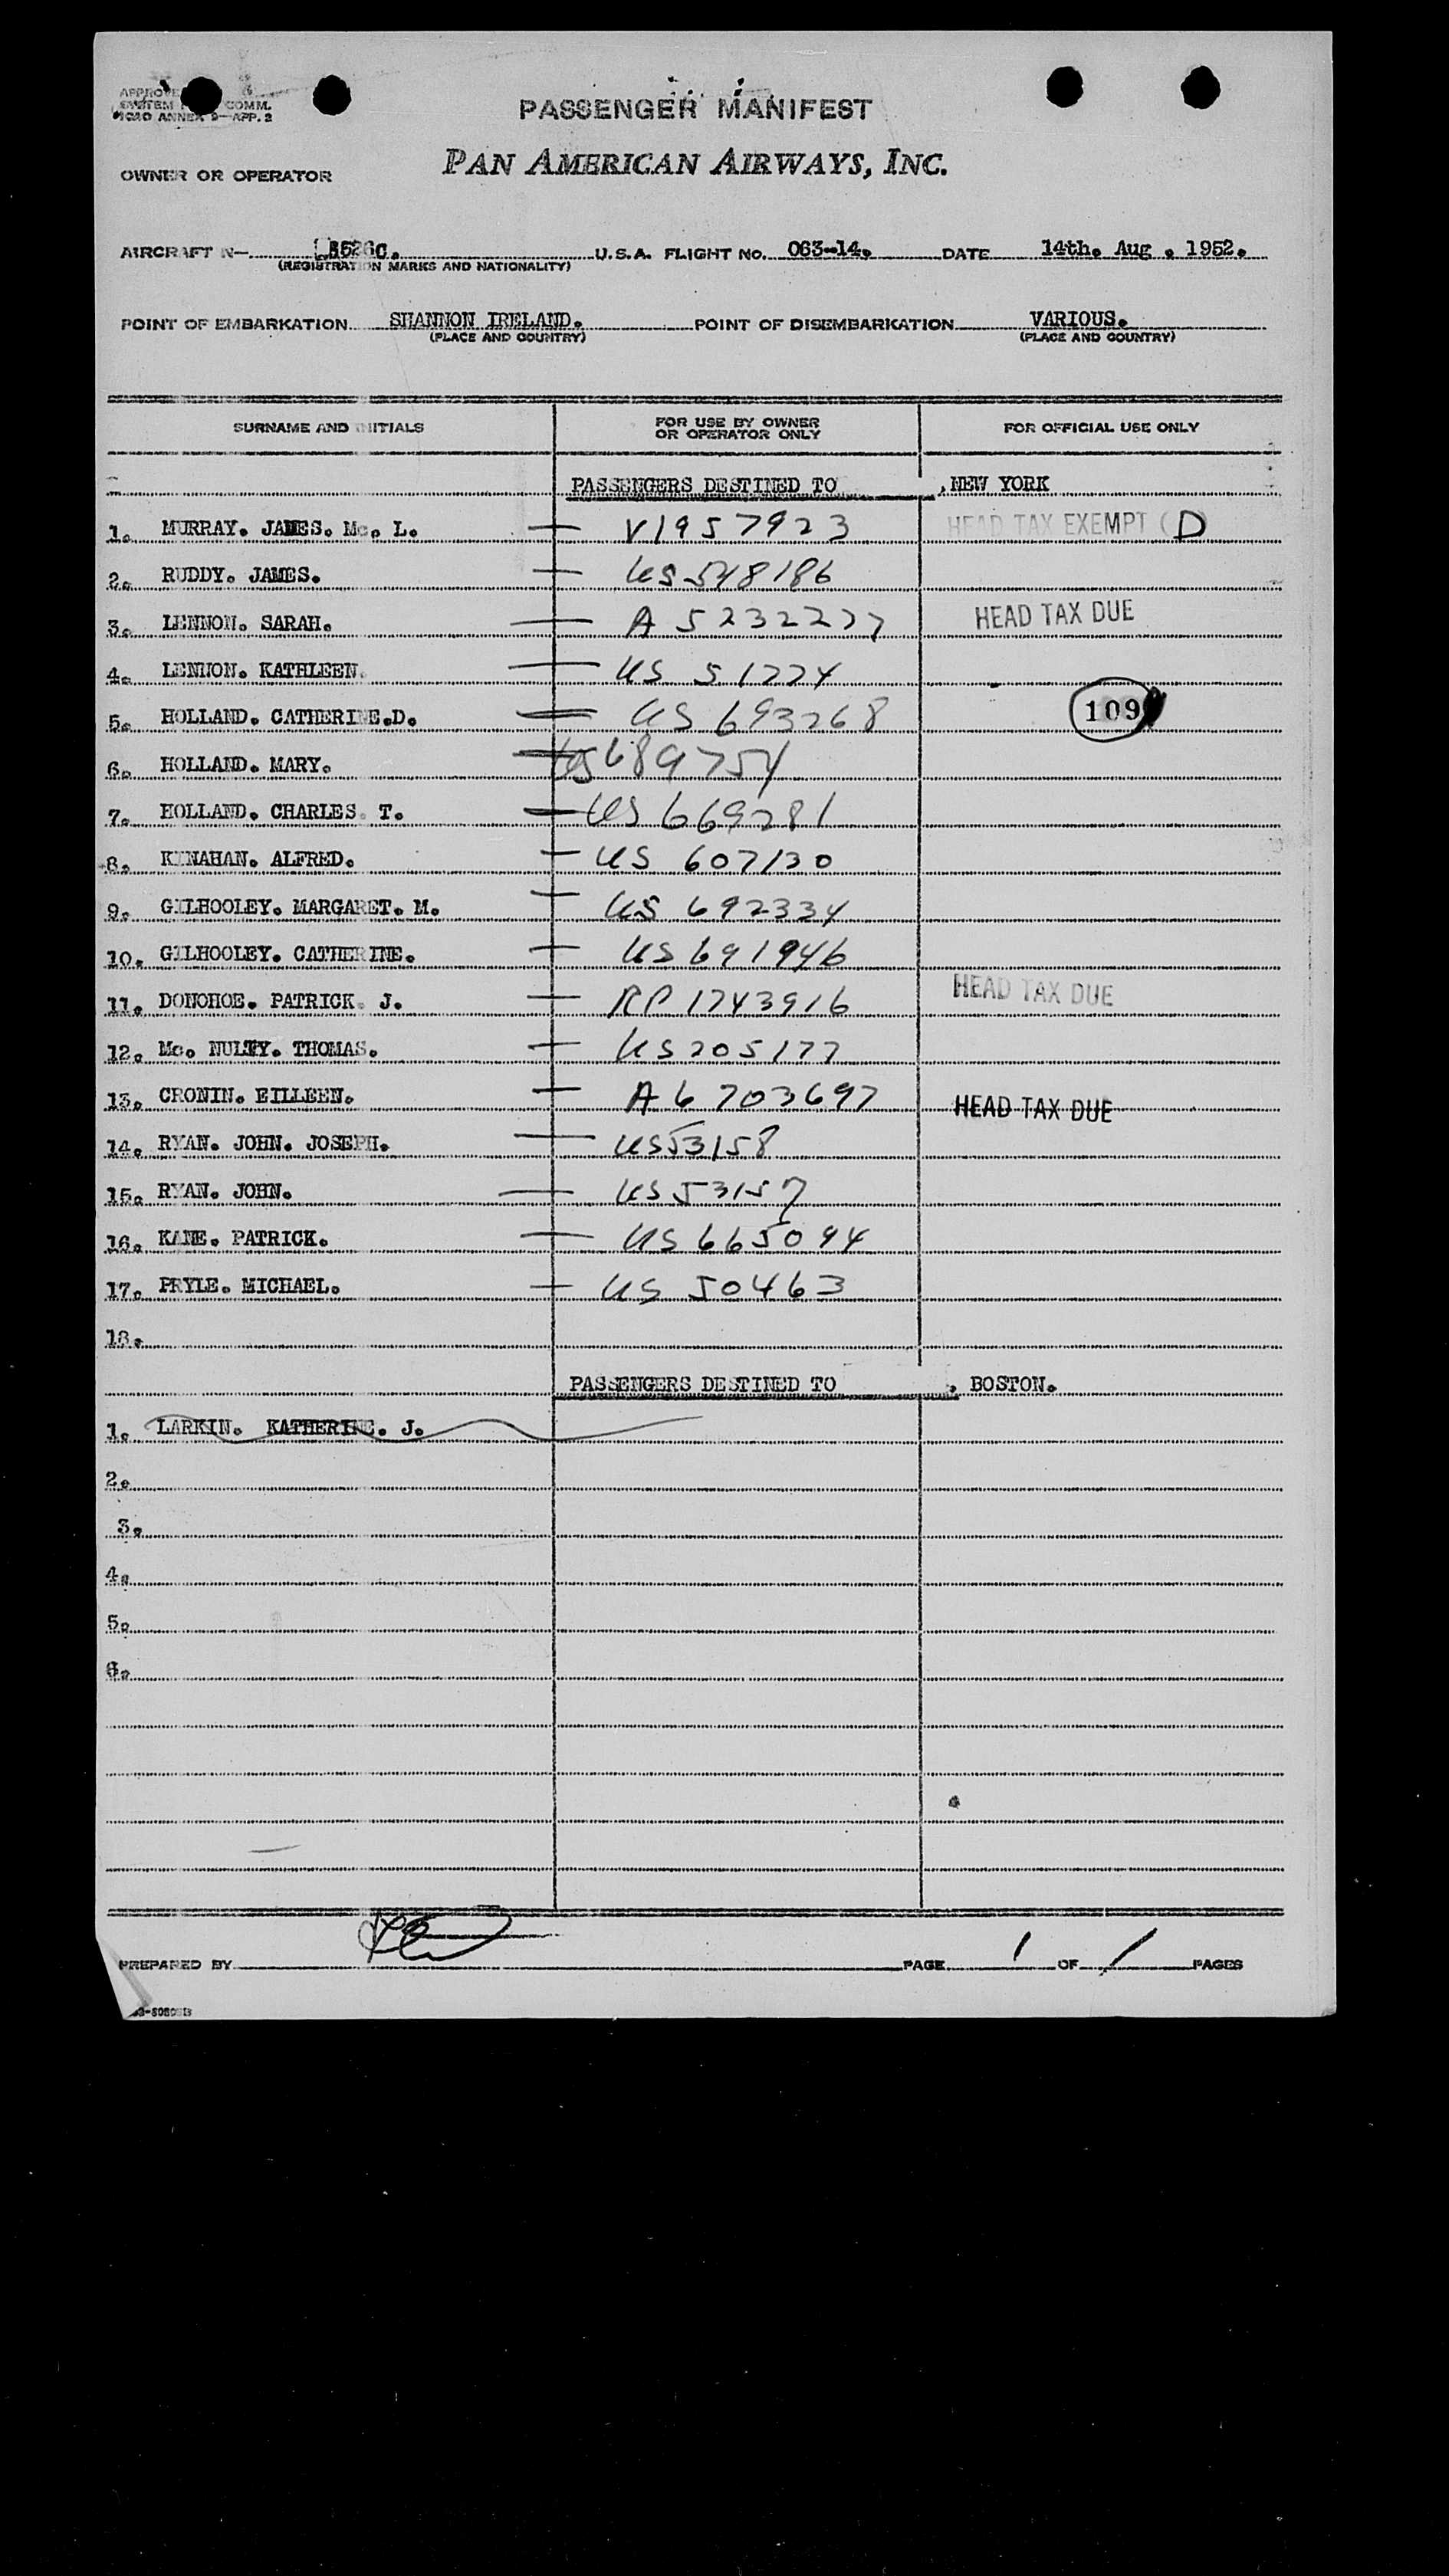 SYSTEM COMM.
ICAO ANNEX 9—APP. 2
PASSENGER MANIFEST
OWNER OR OPERATOR PAN AMERICAN AIRWAYS, INC.
AIRCRAFT N— U.S.A. FLIGHT NO. 063-14. DATE 14th. Aug . 1952.
(REGISTRATION MARKS AND NATIONALITY)
POINT OF EMBARKATION SHANNON IRELAND. POINT OF DISEMBARKATION VARIOUS.
(PLACE AND COUNTRY) (PLACE AND COUNTRY)
SURNAME AND INITIALS FOR USE BY OWNER OR OPERATOR ONLY FOR OFFICIAL USE ONLY
PASSENGERS DESTINED TO , NEW YORK
1. MURRAY. JAMES. Mc. L. — V1957923 HEAD TAX EXEMPT (D)
2. RUDDY. JAMES. — US 548186
3. LENNON. SARAH. — A 5232277 HEAD TAX DUE
4. LENNON. KATHLEEN. — US 51224
5. HOLLAND. CATHERINE.D. — US 693268 109
6. HOLLAND. MARY. — US 689754
7. HOLLAND. CHARLES. T. — US 669281
8. KINAHAN. ALFRED. — US 607130
9. GILHOOLEY. MARGARET. M. — US 692334
10. GILHOOLEY. CATHERINE. — US 691946
11. DONOHOE. PATRICK. J. — RP 1743916 HEAD TAX DUE
12. Mc. NULTY. THOMAS. — US 205177
13. CRONIN. EILLEEN. — A 6703697 HEAD TAX DUE
14. RYAN. JOHN. JOSEPH. — US53158
15. RYAN. JOHN. — US 53157
16. KANE. PATRICK. — US 665094
17. PRYLE. MICHAEL. — US 50463
18.
PASSENGERS DESTINED TO . BOSTON.
1. LARKIN. KATHERINE. J.
2.
3.
4.
5.
6.
PREPARED BY PAGE 1 OF 1 PAGES